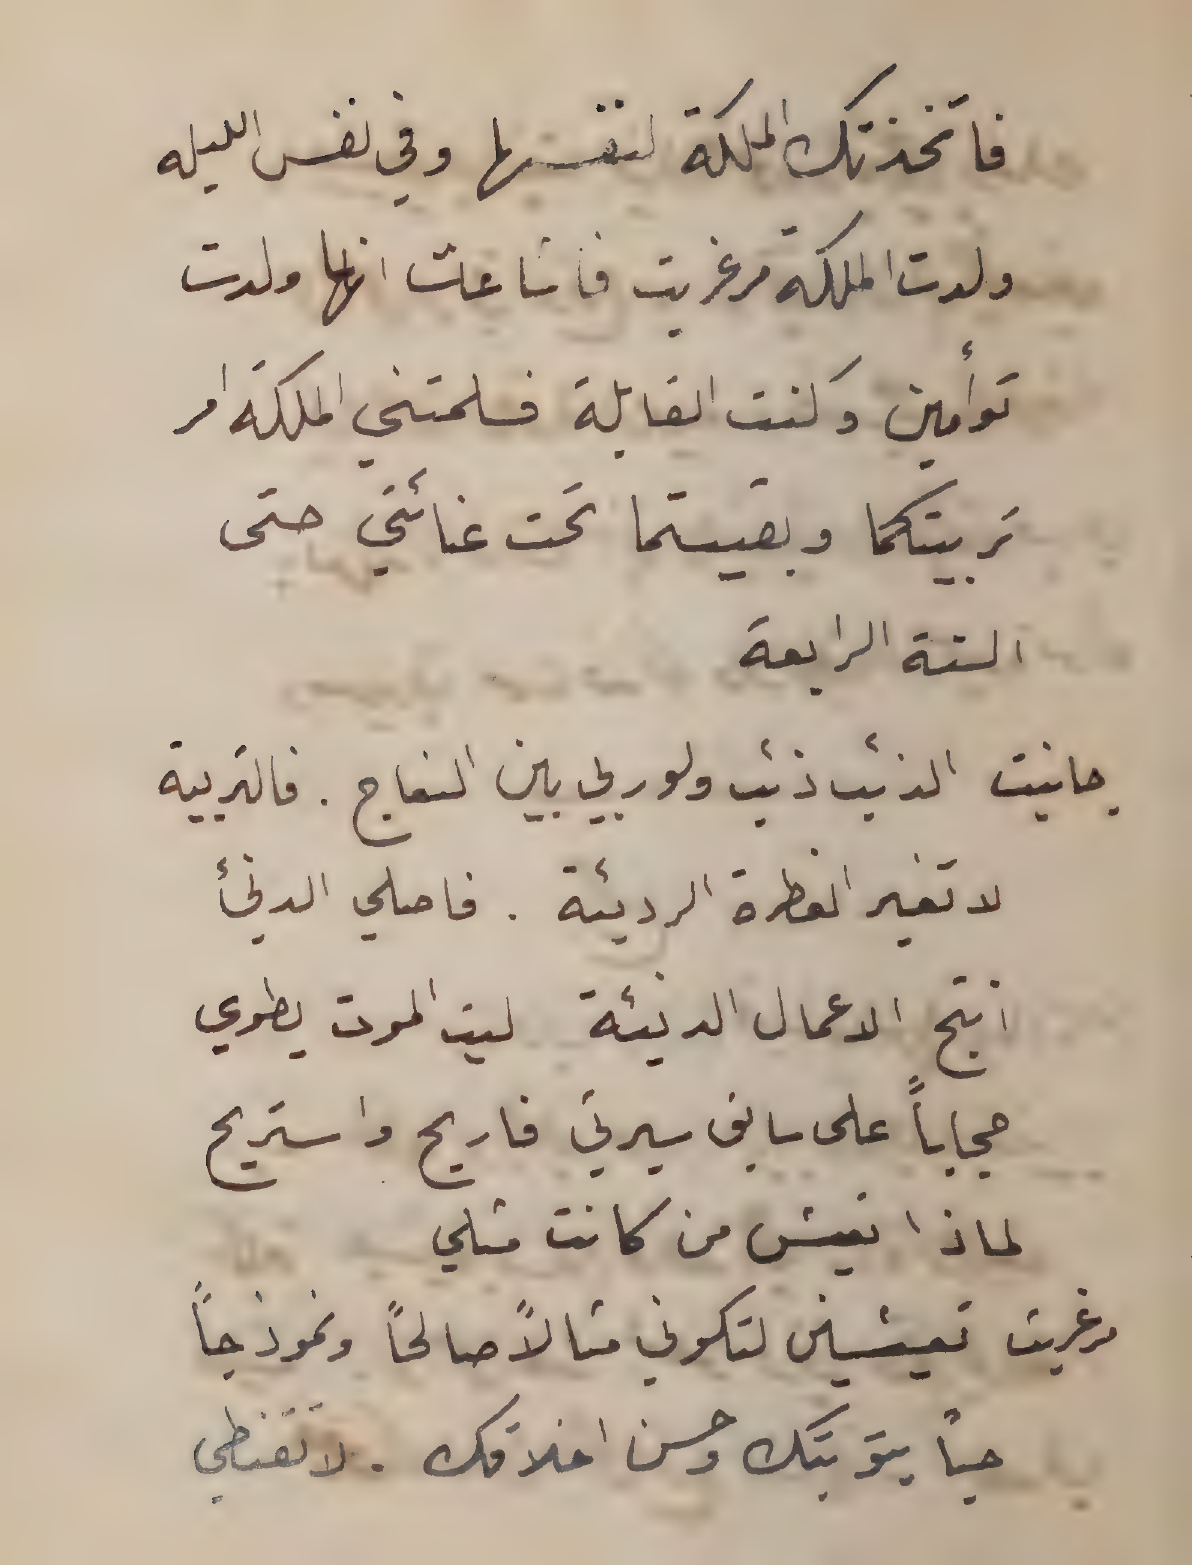 فاتخذتك الملكة لنفسها وفي نفس الليله
ولدت الملكة مرغريت فاشاعت انها ولدت
توأمين وكنت القابلة فسلمتني الملكة امر
تربيتكما وبقيتما تحت عنائتي حتى
السنة الرابعة
جانيت الذئب ذئب ولو ربي بين النعاج . فالتربية
لا تغير الفطرة الرديئة . فاصلي الدنئ
انتج الاعمال الدنيئة ليت الموت يطوي
حجاباً على سابق سيرتي فاريح واستريح
لماذا تعيش من كانت مثلي
مرغريت تعيشين لتكوني مثالاً صالحاً ونموذجاً
حياً بتوبتك وحسن اخلاقك . لا تقنطي